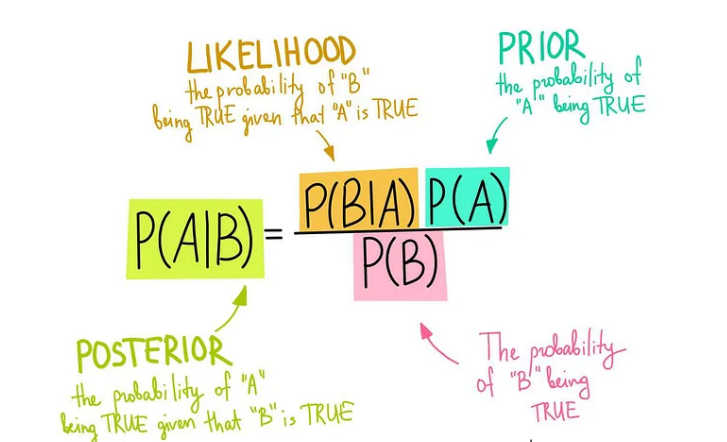 LIKELIHOOD
the probability of "B"
being TRUE given that "A" is TRUE
PRIOR
the probability of
"A" being TRUE
P(A|B) = P(B|A) P(A)
P(B)
POSTERIOR
the probability of "A"
being TRUE given that "B" is TRUE
The probability
of "B" being
TRUE